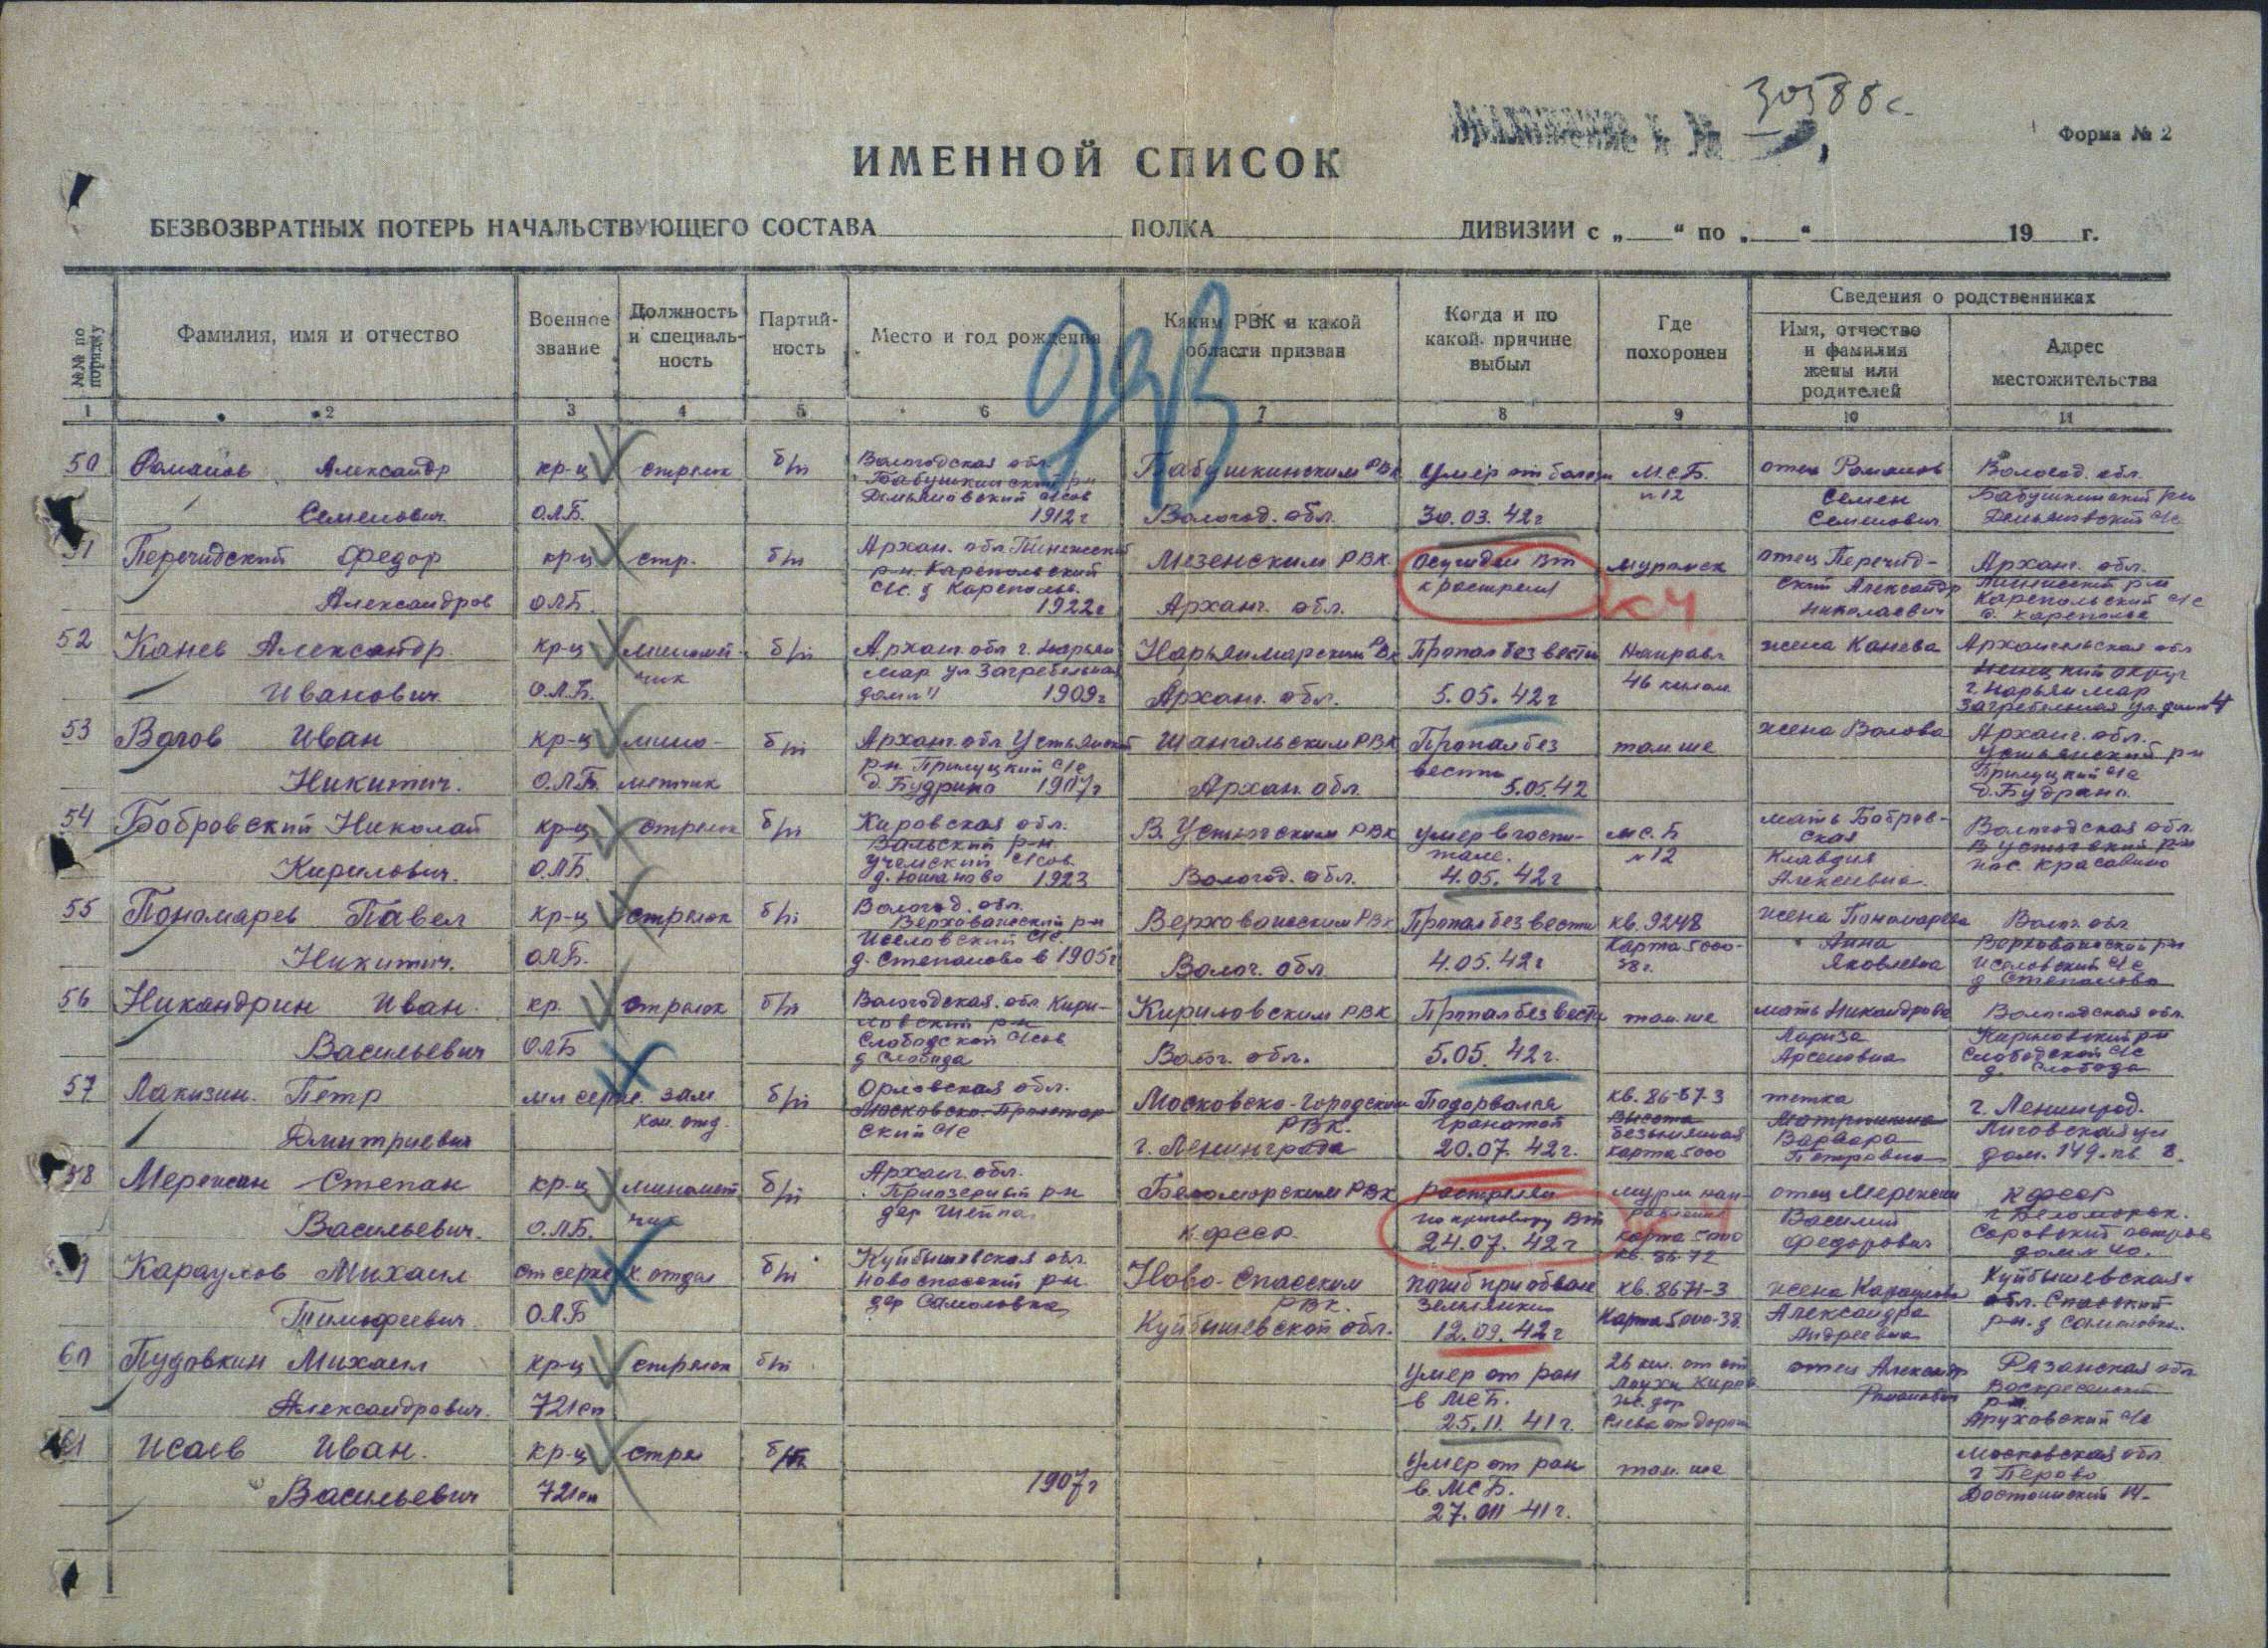 30588с.
Приложение к №
Форма № 2
ИМЕННОЙ СПИСОК
БЕЗВОЗВРАТНЫХ ПОТЕРЬ НАЧАЛЬСТВУЮЩЕГО СОСТАВА ПОЛКА ДИВИЗИИ с „ “ по „ “ 19 г.
№№ по порядку
Фамилия, имя и отчество
Военное звание
Должность и специальность
Партийность
Место и год рождения
Каким РВК и какой области призван
Когда и по какой причине выбыл
Где похоронен
Сведения о родственниках
Имя, отчество и фамилия жены или родителей
Адрес местожительства
1 2 3 4 5 6 7 8 9 10 11
50 Романов Александр кр-ц стрелок б/п Вологодская обл. Бабушкинским РВК Умер от болезн М.С.Б. отец Романов Вологод. обл.
Бабушкинский р-н n 12 Семен Бабушкинский р-н
Демьяновский с/сов
Семенович О.Л.Б. 1912 г Вологод. обл. 30.03.42 г Семенович Демьяновский с/с
51 Перечидский Федор кр-ц стр. б/п Архан. обл. Пинежский Мезенским РВК Осужден ВТ Мурманск отец Перечид- Арханг. обл.
р-н. Карепольский к расстрел ский Александр Пинежский р-н
с/с. д Кареполье Николаевич Карепольский с/с
Александров О.Л.Б. 1922 г Арханг. обл. КЧ д. Кареполье
52 Канев Александр кр-ц миномет- б/п Арханг. обл г. Нарьян Нарьянмарским РВк Пропал без вести Направл жена Канева Архангельская обл
чик мар ул Загребельная 46 килом. Ненецкий округ
Иванович О.Л.Б. дом n 4 1909 г Арханг. обл. 5.05.42 г г. Нарьян мар
Загребельная ул. дом 4
53 Волов Иван кр-ц мино- б/п Арханг. обл Устьянский Шангальским РВК Пропал без там же жена Волова Арханг. обл.
р-н Прилуцкий с/с вести Устьянский р-н
Никитич. О.Л.Б. метчик д. Будрино 1907 г Архан. обл. 5.05.42 Прилуцкий с/с
д. Будрино.
54 Бобровский Николай кр-ц стрелок б/п Кировская обл. В. Устюгским РВК умер в госпи- мс. Б мать Бобров- Вологодская обл.
тале. n 12 ская В Устюгский р-н
Клавдия пос. Красавино
Кирилович. О.Л.Б. д. Юшаново 1923 Вологод. обл. 4.05.42 г Алексеевна.
55 Пономарев Павел кр-ц стрелок б/п Вологод. обл. Верховажским РВК Пропал без вести кв. 9248 жена Пономарева Волог. обл
Верховажский р-н карта 5000- Анна Верховажский р-н
с/с. 38 г. Яковлевна с/с
Никитич. О.Л.Б. д. Степаново в 1905 г Волог. обл 4.05.42 г д Степаново
56 Никандрин Иван. кр. стрелок б/п Вологодская. обл Кири- Кириловским РВК Пропал без вести там же мать Никандрова Вологодская обл.
ловский р-н Лариза Кириловский р-н
Слободской с/сов Арсеновна Слободской с/с
Васильевич О.Л.Б д Слобода Волог. обл. 5.05.42 г. д. Слобода
57 Лакизин. Петр мл серж. зам б/п Орловская обл. Московско-Городским Подорвался кв. 86-67-3 тетка г. Ленинград.
ком. отд. Московско-Пролетар РВК. гранатой высота Матрюшкина Лиговская ул
ский с/с безымянная Варвара
Дмитриевич г. Ленинграда 20.07.42 г. карта 5000 Петровна дом. 149. кв 8.
58 Мережин Степан кр-ц миномет б/п Архан. обл. Беломорским РВК расстрелян мурм нап- отец Мережин КФССР
чик Приозерный р-н по приговору ВТ равление Василий г Беломорск.
Васильевич. О.Л.Б. дер Шейна. КФССР. 24.07.42 г карта 5000 Федорович Соровский остров
кв. 86-72 дом n 40.
59 Караулов Михаил ст серж к. отдел б/п Куйбышевская обл. Ново-Спасским погиб при обвале кв. 8671-3 жена Караулова Куйбышевская
Новоспасский р-н РВК. землянки Александра обл. Спасский
Тимофеевич. О.Л.Б дер Самоловка Куйбышевской обл. 12.09.42 г Карта 5000-38. Андреевна р-н. д Самоловка.
60 Пудовкин Михаил кр-ц стрелок б/п Умер от ран 26 кил. от ст отец Александр Рязанская обл
в МСБ. Лоухи Киров Романович р-н.
Александрович. 721 сп 25.11.41 г. жел. дор слева от дороги с/с
61 Исаев Иван. кр-ц стрел б/п Умер от ран там же Московская обл
в. МСБ. г Перово
Васильевич 721 сп 1907 г 27.011 41 г.